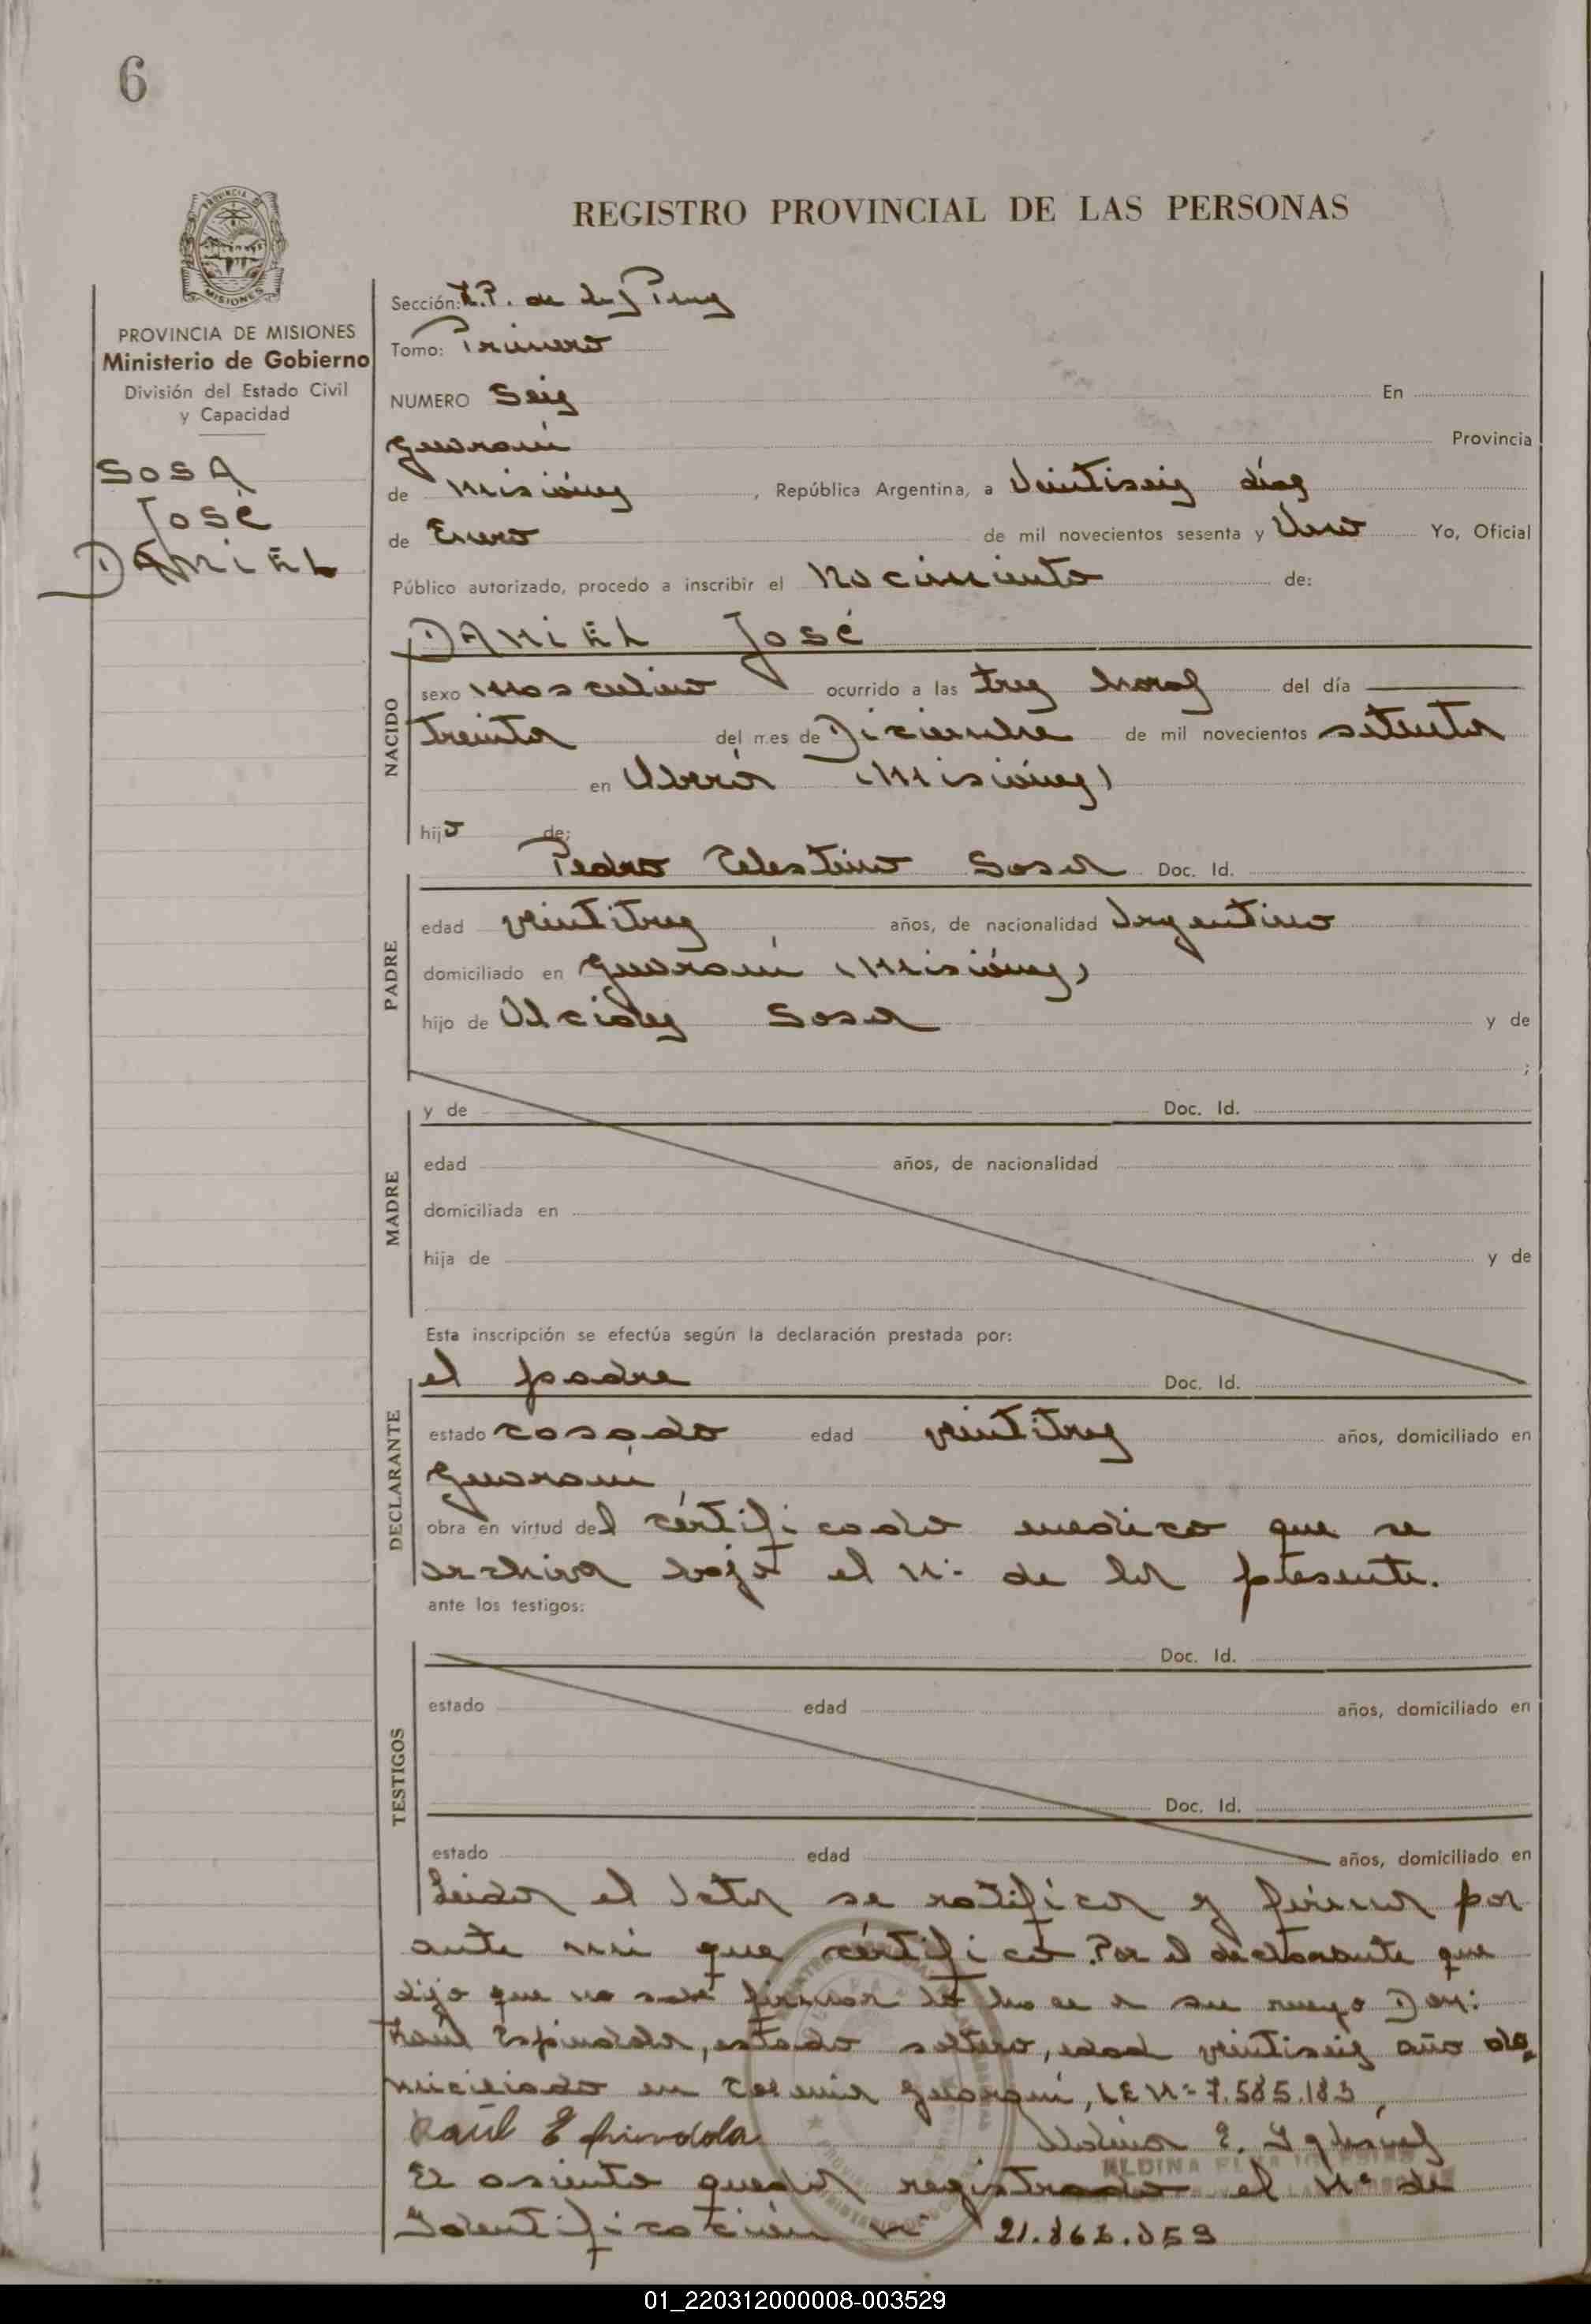 6
REGISTRO PROVINCIAL DE LAS PERSONAS
PROVINCIA DE MISIONES
MISIONES
PROVINCIA DE MISIONES
Ministerio de Gobierno
División del Estado Civil
y Capacidad
SOSA
José
DANIEL
Sección: R.P. de las
Tomo: Primero
NUMERO Seis En
Guarani Provincia
de Misiónes, República Argentina, a Veintiseis días
de Enero de mil novecientos sesenta y Uno Yo, Oficial
Público autorizado, procedo a inscribir el Nacimiento de:
DANIEL José
NACIDO
sexo masculino ocurrido a las tres horas del día
treinta del mes de Diciembre de mil novecientos setenta
en Oberá (Misiónes)
hijo de:
Pedro Celestino Sosa Doc. Id.
PADRE
edad veintitres años, de nacionalidad Argentino
domiciliado en Guarani (Misiónes)
hijo de Alcides Sosa y de
;
MADRE
y de Doc. Id.
edad años, de nacionalidad
domiciliada en
hija de y de
Esta inscripción se efectúa según la declaración prestada por:
DECLARANTE
el padre Doc. Id.
estado casado edad veintitres años, domiciliado en
Guarani
obra en virtud del certificado medico que se
archiva bajo el Nº de la presente.
ante los testigos:
TESTIGOS
Doc. Id.
estado edad años, domiciliado en
Doc. Id.
estado edad años, domiciliado en
Leida el Acta se ratifica y firma por
ante mi que certifico. Por el declarante que
dijo que no sabe firmar lo hace a su ruego Don:
Raúl Espindola, estado soltero, edad veintiseis año do
miciliado en Colonia Guarani, LE Nº 7.585.183
Raúl Espindola Aldina E. Iglesias
ALDINA ELSA IGLESIAS
El asiento queda registrado el Nº de
Identificación Nº
01_220312000008-003529